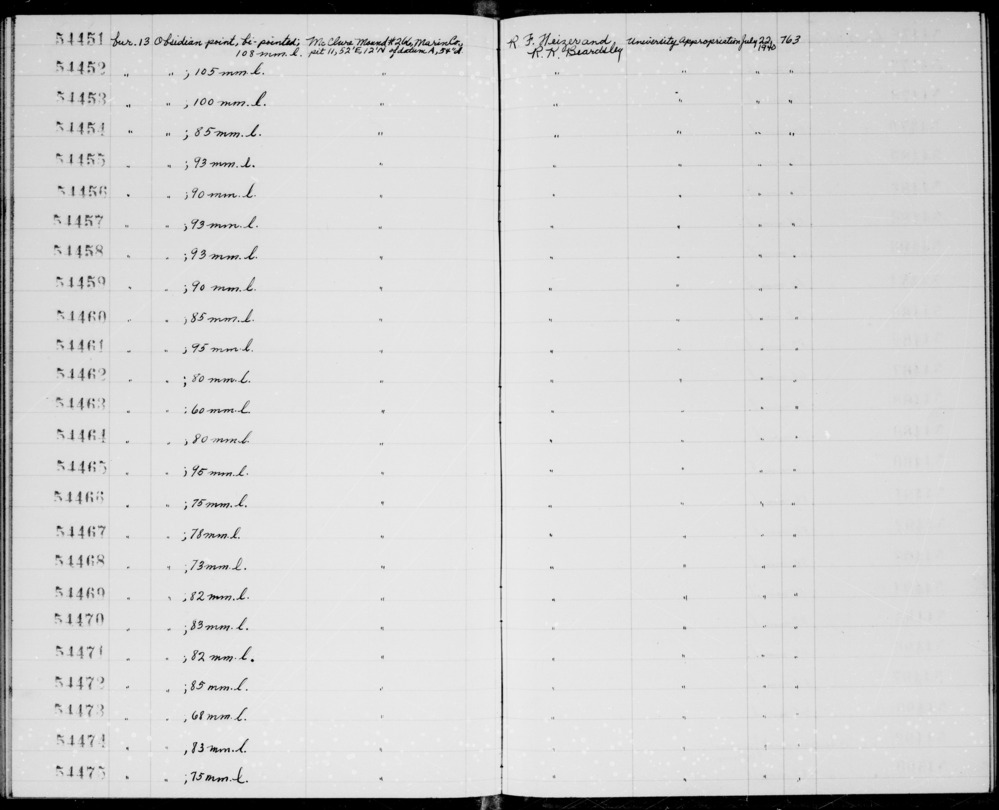 54451 bur. 13 Obsidian point, bi-pointed; McClure Mound #266, Marin Co; R. F. Heizer and University Appropriation July 22, 763
108 mm. l. pit 11, 52'E, 12'N of datum A, 54"d R. K. Beardsley 1940
54452 " " ; 105 mm. l. " " " " "
54453 " " ; 100 mm. l. " " " " "
54454 " " ; 85 mm. l. " " " " "
54455 " " ; 93 mm. l. " " " " "
54456 " " ; 90 mm. l. " " " " "
54457 " " ; 93 mm. l. " " " " "
54458 " " ; 93 mm. l. " " " " "
54459 " " ; 90 mm. l. " " " " "
54460 " " ; 85 mm. l. " " " " "
54461 " " ; 95 mm. l. " " " " "
54462 " " ; 80 mm. l. " " " " "
54463 " " ; 60 mm. l. " " " " "
54464 " " ; 80 mm. l. " " " " "
54465 " " ; 95 mm. l. " " " " "
54466 " " ; 75 mm. l. " " " " "
54467 " " ; 78 mm. l. " " " " "
54468 " " ; 73 mm. l. " " " " "
54469 " " ; 82 mm. l. " " " " "
54470 " " ; 83 mm. l. " " " " "
54471 " " ; 82 mm. l. " " " " "
54472 " " ; 85 mm. l. " " " " "
54473 " " ; 68 mm. l. " " " " "
54474 " " ; 83 mm. l. " " " " "
54475 " " ; 75 mm. l. " " " " "